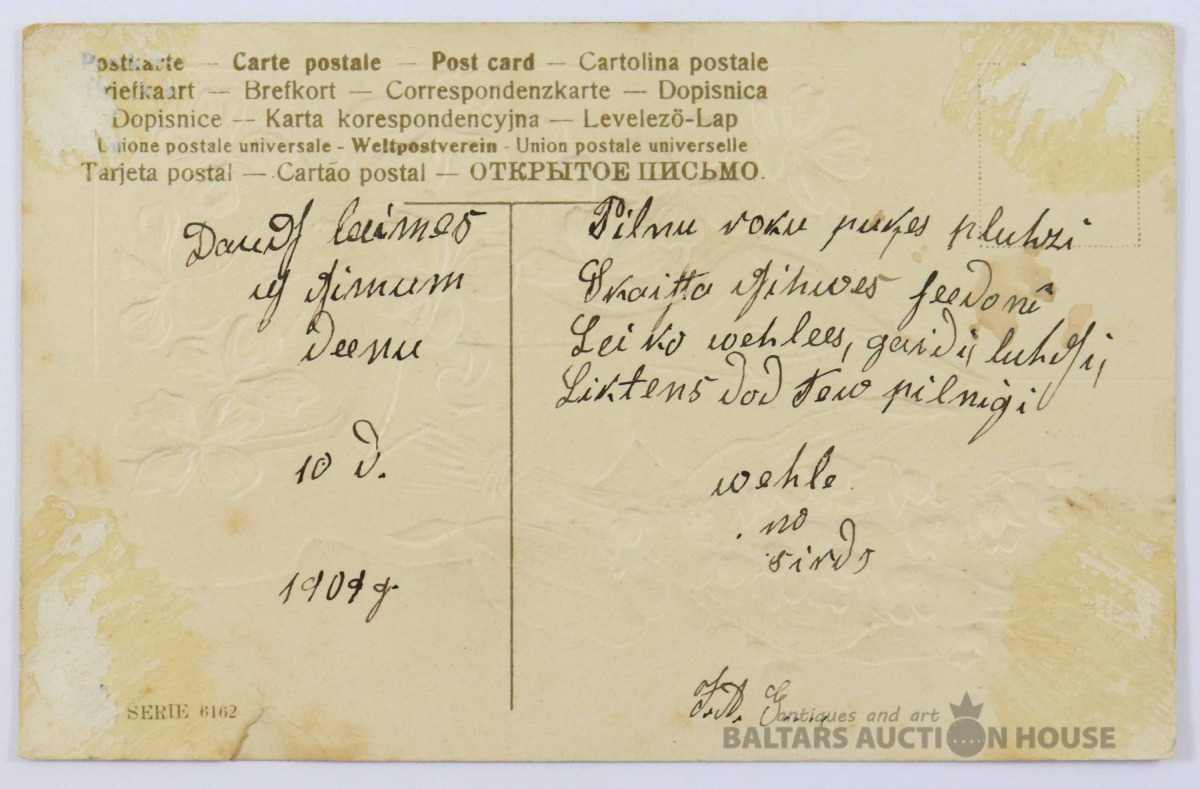 Postkarte — Carte postale — Post card — Cartolina postale
Briefkaart — Brefkort — Correspondenzkarte — Dopisnica
Dopisnice — Karta korespondencyjna — Levelező-Lap
Unione postale universale - Weltpostverein - Union postale universelle
Tarjeta postal — Cartão postal — ОТКРЫТОЕ ПИСЬМО.
Daudſ laimes
uſ dſimum
deenu
10 d.
1909 g
Pilnu roku pukes pluhzi
Skaiſta dſihwes ſeedonî
Lei ko wehlees, gaidi, luhdſi,
Liktens dod Tew pilnigi
wehle
no
sirds
SERIE 6162
antiques and art
BALTARS AUCTION HOUSE